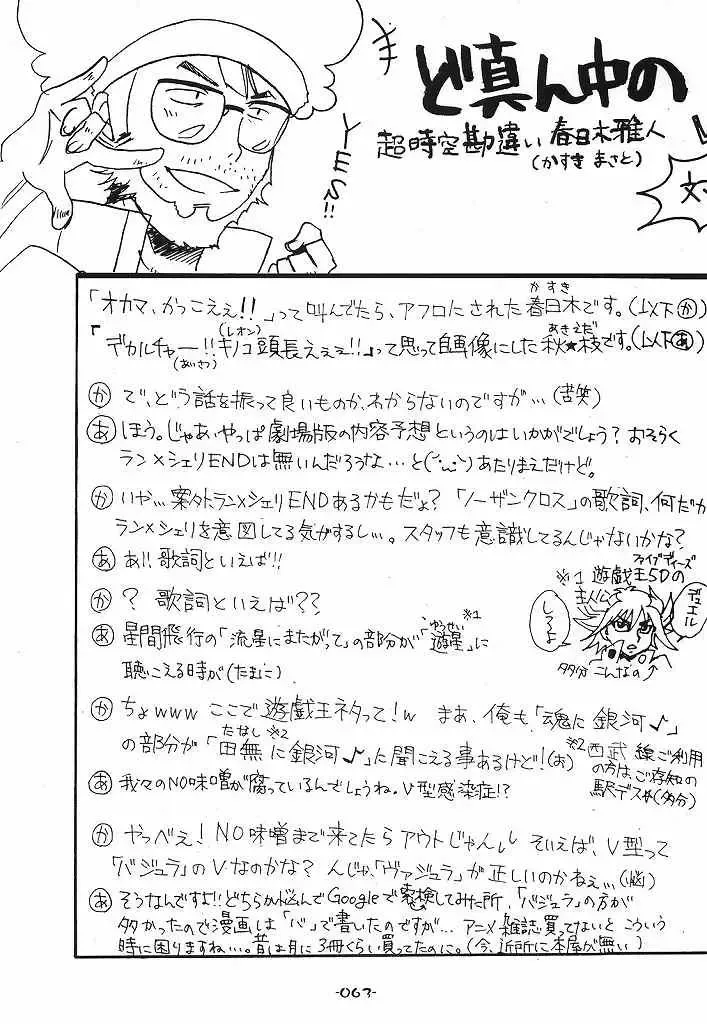 ど真ん中の
超時空勘違い 春日木雅人
(かすき まさと)
YES!!
「オカマ、かっこえぇ!!」って叫んでたら、アフロにされた春日木です。(以下か)
かすき
「デカルチャー!!キノコ頭長えぇぇ!!」って思って自画像にした秋★枝です。(以下あ)
(レオン)
(あいさつ)
あきえだ
か で、どう話を振って良いものか、わからないのですが…(苦笑)
あ ほう。じゃあ、やっぱ劇場版の内容予想というのはいかがでしょう?おそらく
ラン×シェリENDは無いんだろうな…と(´・ω・`)あたりまえだけど。
か いや…案外ラン×シェリENDあるかもだょ?「ノーザンクロス」の歌詞、何だか
ラン×シェリを意図してる気がするし…。スタッフも意識してるんじゃないかな?
あ あ!!歌詞といえば!!
か ? 歌詞といえば??
あ 星間飛行の「流星にまたがって」の部分が「遊星」に
ゆうせい ※1
聴こえる時が(たまに)
※1 遊戯王5Dの
ファイブディーズ
主人公
デュエル
しろよ
多分こんなの
か ちょwww ここで遊戯王ネタって!w まあ、俺も「魂に銀河♪」
の部分が「田無に銀河♪」に聞こえる事あるけど!(お)
たなし ※2
※2 西武線ご利用
の方はご存知の
駅デスね(多分)
あ 我々のNO味噌が腐っているんでしょうね。V型感染症!?
か やっべぇ!NO味噌まで来てたらアウトじゃん そいえば、V型って
「バジュラ」のVなのかな? んじゃ、「ヴァジュラ」が正しいのかねぇ…(悩)
あ そうなんですよ!!どちらか悩んでGoogleで検索してみた所、「バジュラ」の方が
多かったので漫画は「バ」で書いたのですが… アニメ雑誌買ってないと こういう
時に困りますねぃ…。昔は月に3冊くらい買ってたのに。(今、近所に本屋が無い)
-063-